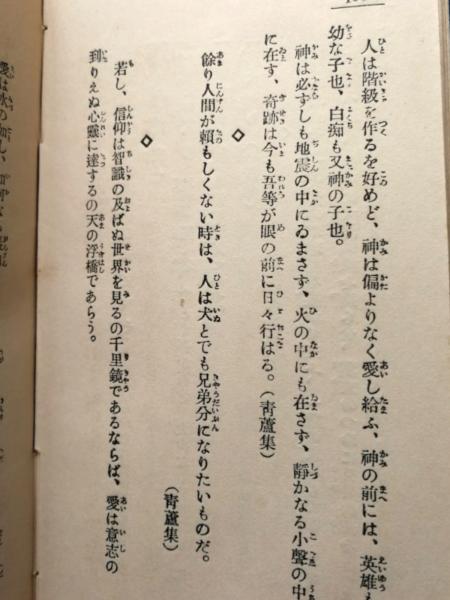 人は階級を作るを好めど、神は偏よりなく愛し給ふ、神の前には、英雄も
幼な子也、白痴も又神の子也。
神は必ずしも地震の中にゐまさず、火の中にも在さず、靜かなる小聲の中
に在す、奇跡は今も吾等が眼の前に日々行はる。(靑蘆集)
◇
餘り人間が頼もしくない時は、人は犬とでも兄弟分になりたいものだ。
(靑蘆集)
◇
若し、信仰は智識の及ばぬ世界を見るの千里鏡であるならば、愛は意志の
到りえぬ心靈に達するの天の浮橋であらう。